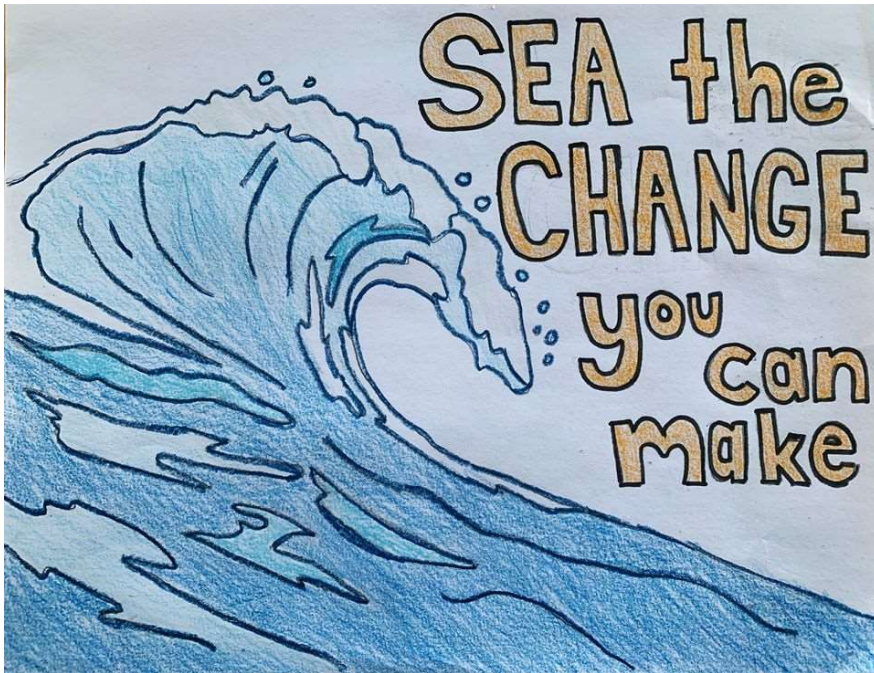 SEA the
CHANGE
you
can
make